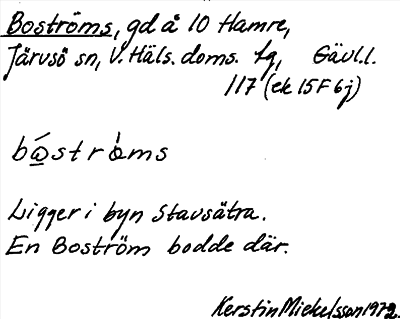 Boströms, gd å 10 Hamre,
Järvsö sn, V. Häls. doms. tg, Gävl.l.
117 (ek 15F 6j)
bo̲ströms
Ligger i byn Stavsätra.
En Boström bodde där.
Kerstin Mickelsson 1972.